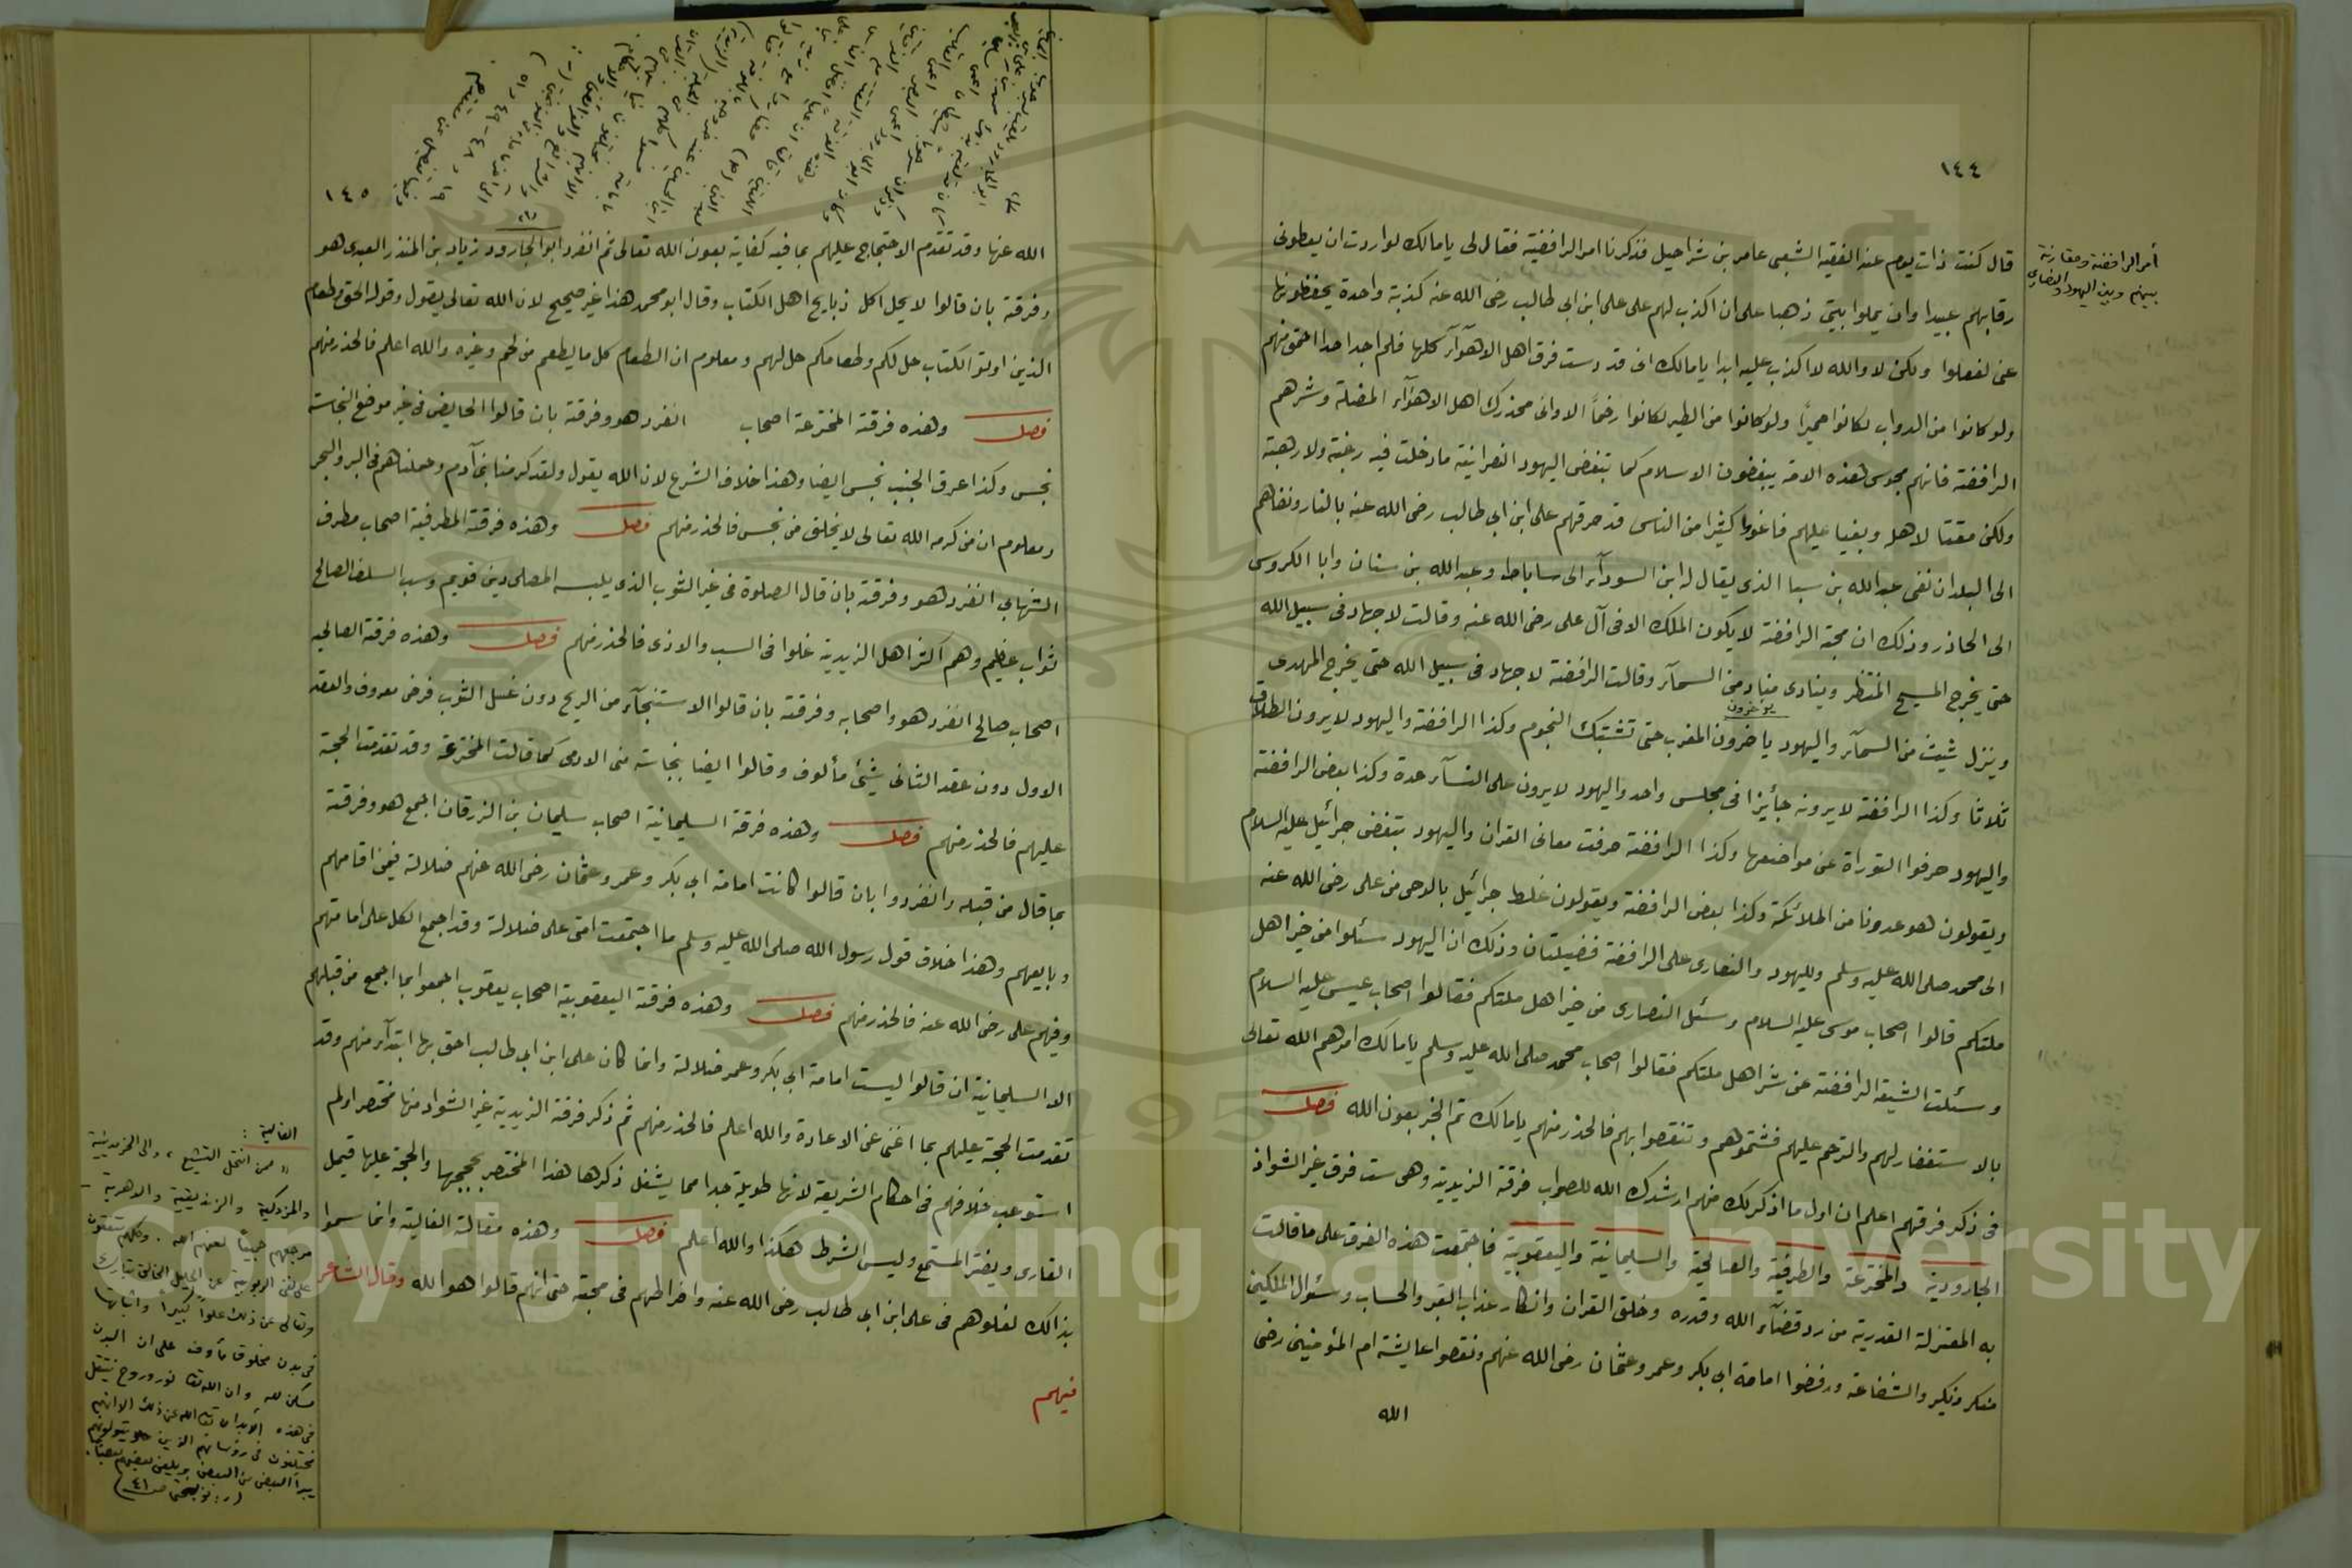 ١٤٤
أمر الرافضة ومقارنة
بينهم وبين اليهود والنصارى
قال كنت ذات يوم عند الفقيه الشعبى عامر بن شراحيل فذكرنا امر الرافضية فقال لى يا مالك لو اردت ان يعطونى
رقابهم عبيدا وان يملوا بيتى ذهبا على ان اكذب لهم على على ابن ابى طالب رضى الله عنه كذبة واحدة يحفظونها
عنى لفعلوا ولكن لا والله لا اكذب عليه ابدا يا مالك انى قد درست فرق اهل الاهوآء كلها فلم اجد احدا احمق منهم
ولو كانوا من الدواب لكانوا حميرًا ولو كانوا من الطير لكانوا رخمًا الا وانى محذرك اهل الاهوآء المضلة وشرهم
الرافضة فانهم مجوس هذه الامة يبغضون الاسلام كما تبغض اليهود النصرانية ما دخلت فيه رغبة ولا رهبة
ولكن مقتا لاهله وبغيا عليهم فاغووا كثيرا من الناس قد حرقهم على ابن ابى طالب رضى الله عنه بالنار ونفاهم
الى البلدان نفى عبد الله بن سبا الذى يقال له ابن السودآء الى ساباط وعبد الله بن سنان وابا الكروس
الى الحاذر وذلك ان محبة الرافضة لا يكون الملك الا فى آل على رضى الله عنه وقالت لا جهاد فى سبيل الله
حتى يخرج المسيح المنتظر وينادى مناد من السمآء وقالت الرافضة لا جهاد فى سبيل الله حتى يخرج المهدى
يؤخرون
وينزل شيث من السمآء واليهود ياخرون المغرب حتى تشتبك النجوم وكذا الرافضة واليهود لا يرون الطلاق
ثلاثا وكذا الرافضة لا يرونه جأيزا فى مجلس واحد واليهود لا يرون على النسآء عدة وكذا بعض الرافضة
واليهود حرفوا التوراة عن مواضعها وكذا الرافضة حرفت معانى القران واليهود بتغض جبرائيل عليه السلام
ويقولون هو عدونا من الملائكة وكذا بعض الرافضة ويقولون غلط جبرائيل بالوحى من على رضى الله عنه
الى محمد صلى الله عليه وسلم ولليهود والنصارى على الرافضة فضيلتان وذلك ان اليهود سئلوا من خير اهل
ملتكم قالوا اصحاب موسى عليه السلام وسئل النصارى من خير اهل ملتكم فقالوا اصحاب عيسى عليه السلام
وسئلت الشيعة الرافضة عن شر اهل ملتكم فقالوا اصحاب محمد صلى الله عليه وسلم يا مالك امرهم الله تعالى
بالاستغفار لهم والترحم عليهم فشتموهم وتنقصوا بهم فالحذر منهم يا مالك تم الخبر بعون الله فصل
فى ذكر فرقهم اعلم ان اول ما اذكر لك منهم ارشدك الله للصواب فرقة الزيدية وهى ست فرق غير الشواذ
الجارودية والمخترعة والمطرفية والصالحية والسليمانية واليعقوبية فاجتمعت هذه الفرق على ما قالت
به المعتزلة القدرية من رد قضآء الله وقدره وخلق القران وانكار عذاب القبر والحساب وسئوال الملكين
منكر ونكير والشفاعة ورفضوا امامة ابى بكر وعمر وعثمان رضى الله عنهم ونقصوا عايشة ام المؤمنين رضى
الله
١٤٥
الله عنها وقد تقدم الاحتجاج عليهم بما فيه كفاية بعون الله تعالى ثم انفرد ابو الجارود زياد بن المنذر العبدى هو
وفرقته بان قالوا لا يحل اكل ذبايح اهل الكتاب وقال ابو محمد هذا غير صحيح لان الله تعالى يقول وقوله الحق وطعام
الذين اوتوا الكتاب حل لكم وطعامكم حل لهم ومعلوم ان الطعام كل ما يطعم من لحم وغيره والله اعلم فالحذر منهم
فصل وهذه فرقة المخترعة اصحاب انفرد هو وفرقته بان قالوا الحايض فى غير موضع النجاسة
نجس وكذا عرق الجنب نجس ايضا وهذا خلاف الشرع لان الله يقول ولقد كرمنا بنى آدم وحملناهم فى البر والبحر
ومعلوم ان من كرمه الله تعالى لا يخلق من نجس فالحذر منهم فصل وهذه فرقة المطرفية اصحاب مطرف
الشهابى انفرد هو وفرقته بان قال الصلوة فى غير الثوب الذى يلبسه المصلى دين قويم وسب السلف الصالح
ثواب عظيم وهم اكثر اهل الزيدية غلوا فى السب والاذى فالحذر منهم فصل وهذه فرقة الصالحيه
اصحاب صالح انفرد هو واصحابه وفرقته بان قالوا الاستنجآء من الريح دون غسل الثوب فرض معروف والعقد
الاول دون عقد الثانى شيئ مألوف وقالوا ايضا بنجاسة منى الادمى كما قالت المخترعة وقد تقدمت الحجة
عليهم فالحذر منهم فصل وهذه فرقة السليمانية اصحاب سليمان بن الزرقان اجمع هو وفرقته
بما قال من قبله وانفردوا بان قالوا كانت امامة ابى بكر وعمر وعثمان رضى الله عنهم ضلالة فيمن اقامهم
وبايعهم وهذا خلاف قول رسول الله صلى الله عليه وسلم ما اجتمعت امتى على ضلالة وقد اجمع الكل على امامتهم
وفيهم على رضى الله عنه فالحذر منهم فصل وهذه فرقة اليعقوبية اصحاب يعقوب اجمعوا بما اجمع من قبلهم
الا السليمانية ان قالوا ليست امامة ابى بكر وعمر ضلالة وانما كان على ابن ابى طالب احق بها ابتدآء منهم وقد
تقدمت الحجة عليهم بما اغنى عن الاعادة والله اعلم فالحذر منهم تم ذكر فرقة الزيدية غير الشواذ منها مختصرا ولم
استوعب خلافهم فى احكام الشريعة لانها طويلة جدا مما يشغل ذكرها هذا المختصر بحججها والحجة عليها فيمل
القارى ويفتر المستمع وليس الشرط هكذا والله اعلم فصل وهذه مقالة الغالية وانما سموا
بذالك لغلوهم فى على ابن ابى طالب رضى الله عنه وافراطهم فى محبته حتى انهم قالوا هو الله وقال الشاعر
فيهم
الغالية :
ممن انتحل التشيع ، والى الخرمدينية
والمزدكية والزنديقية والدهرية
مرجعهم جميعًا لعنهم الله . وكلهم متفقون
على نفى الربوبية عن الجليل الخالق تبارك
وتعالى عن ذلك علوًا كبيرًا واثباتها
فى بدن مخلوق مأوف على ان البدن
مسكن لله وان الله تعا نور وروح ينتقل
فى هذه الأبدان تعا الله عن ذلك الا انهم
مختلفون فى رؤسائهم الذين يتولونهم
يبرأ البعض من البعض ويلعن بعضهم بعضًا .
(ر: نوبختى ص ٤١)
Copyright © King Saud University
1957